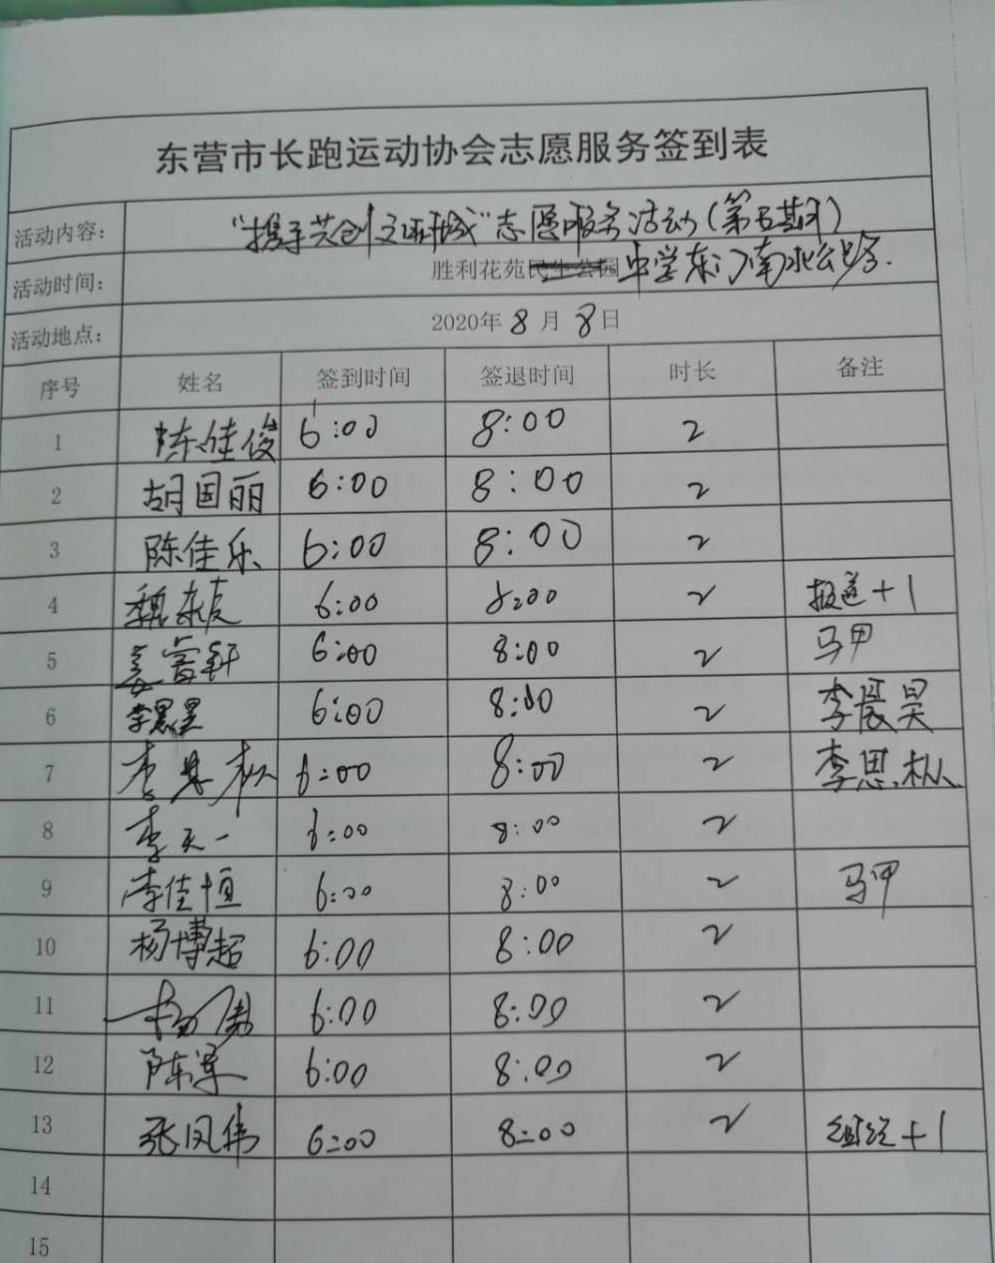 东营市长跑运动协会志愿服务签到表
活动内容： “携手共创文明城”志愿服务活动（第五期）
活动时间： 胜利花苑民生公园中学东门南北公路.
活动地点： 2020年8月8日
序号 姓名 签到时间 签退时间 时长 备注
1 陈佳俊 6:00 8:00 2
2 胡国丽 6:00 8:00 2
3 陈佳乐 6:00 8:00 2
4 魏东友 6:00 8:00 2 报道+1
5 姜富轩 6:00 8:00 2 马甲
6 李晨昊 6:00 8:00 2 李晨昊
7 李思枞 6:00 8:00 2 李思枞
8 李天一 6:00 8:00 2
9 李佳恒 6:00 8:00 2 马甲
10 杨博超 6:00 8:00 2
11 杨 6:00 8:00 2
12 陈军 6:00 8:00 2
13 张凤伟 6:00 8:00 2 组织+1
14
15